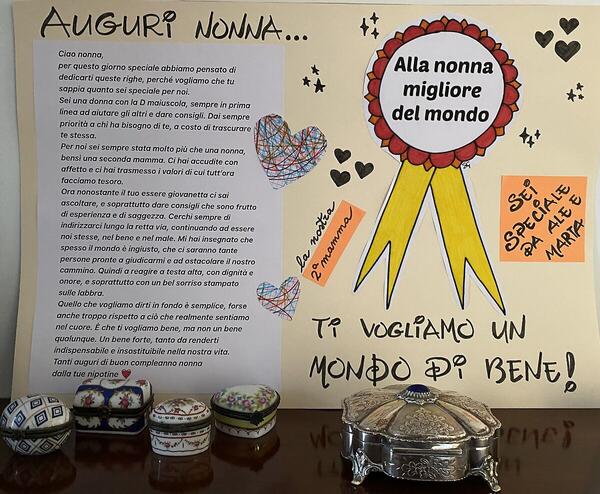 AUGURI NONNA...
Ciao nonna,
per questo giorno speciale abbiamo pensato di
dedicarti queste righe, perché vogliamo che tu
sappia quanto sei speciale per noi.
Sei una donna con la D maiuscola, sempre in prima
linea ad aiutare gli altri e dare consigli. Dai sempre
priorità a chi ha bisogno di te, a costo di trascurare
te stessa.
Per noi sei sempre stata molto più che una nonna,
bensì una seconda mamma. Ci hai accudite con
affetto e ci hai trasmesso i valori di cui tutt'ora
facciamo tesoro.
Ora nonostante il tuo essere giovanetta ci sai
ascoltare, e soprattutto dare consigli che sono frutto
di esperienza e di saggezza. Cerchi sempre di
indirizzarci lungo la retta via, continuando ad essere
noi stesse, nel bene e nel male. Mi hai insegnato che
spesso il mondo è ingiusto, che ci saranno tante
persone pronte a giudicarmi e ad ostacolare il nostro
cammino. Quindi a reagire a testa alta, con dignità e
onore, e soprattutto con un bel sorriso stampato
sulle labbra.
Quello che vogliamo dirti in fondo è semplice, forse
anche troppo rispetto a ciò che realmente sentiamo
nel cuore. È che ti vogliamo bene, ma non un bene
qualunque. Un bene forte, tanto da renderti
indispensabile e insostituibile nella nostra vita.
Tanti auguri di buon compleanno nonna
dalla tue nipotine ❤️
Alla nonna
migliore
del mondo
la nostra
2ª mamma
SEI
SPECIALE
DA ALE E
MARTA
TI VOGLIAMO UN
MONDO DI BENE!